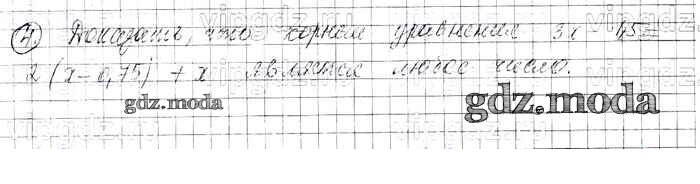 7. Доказать, что корнем уравнения 3x 1,5=
2(x-0,75) + x является любое число.
gdz.moda
gdz.moda